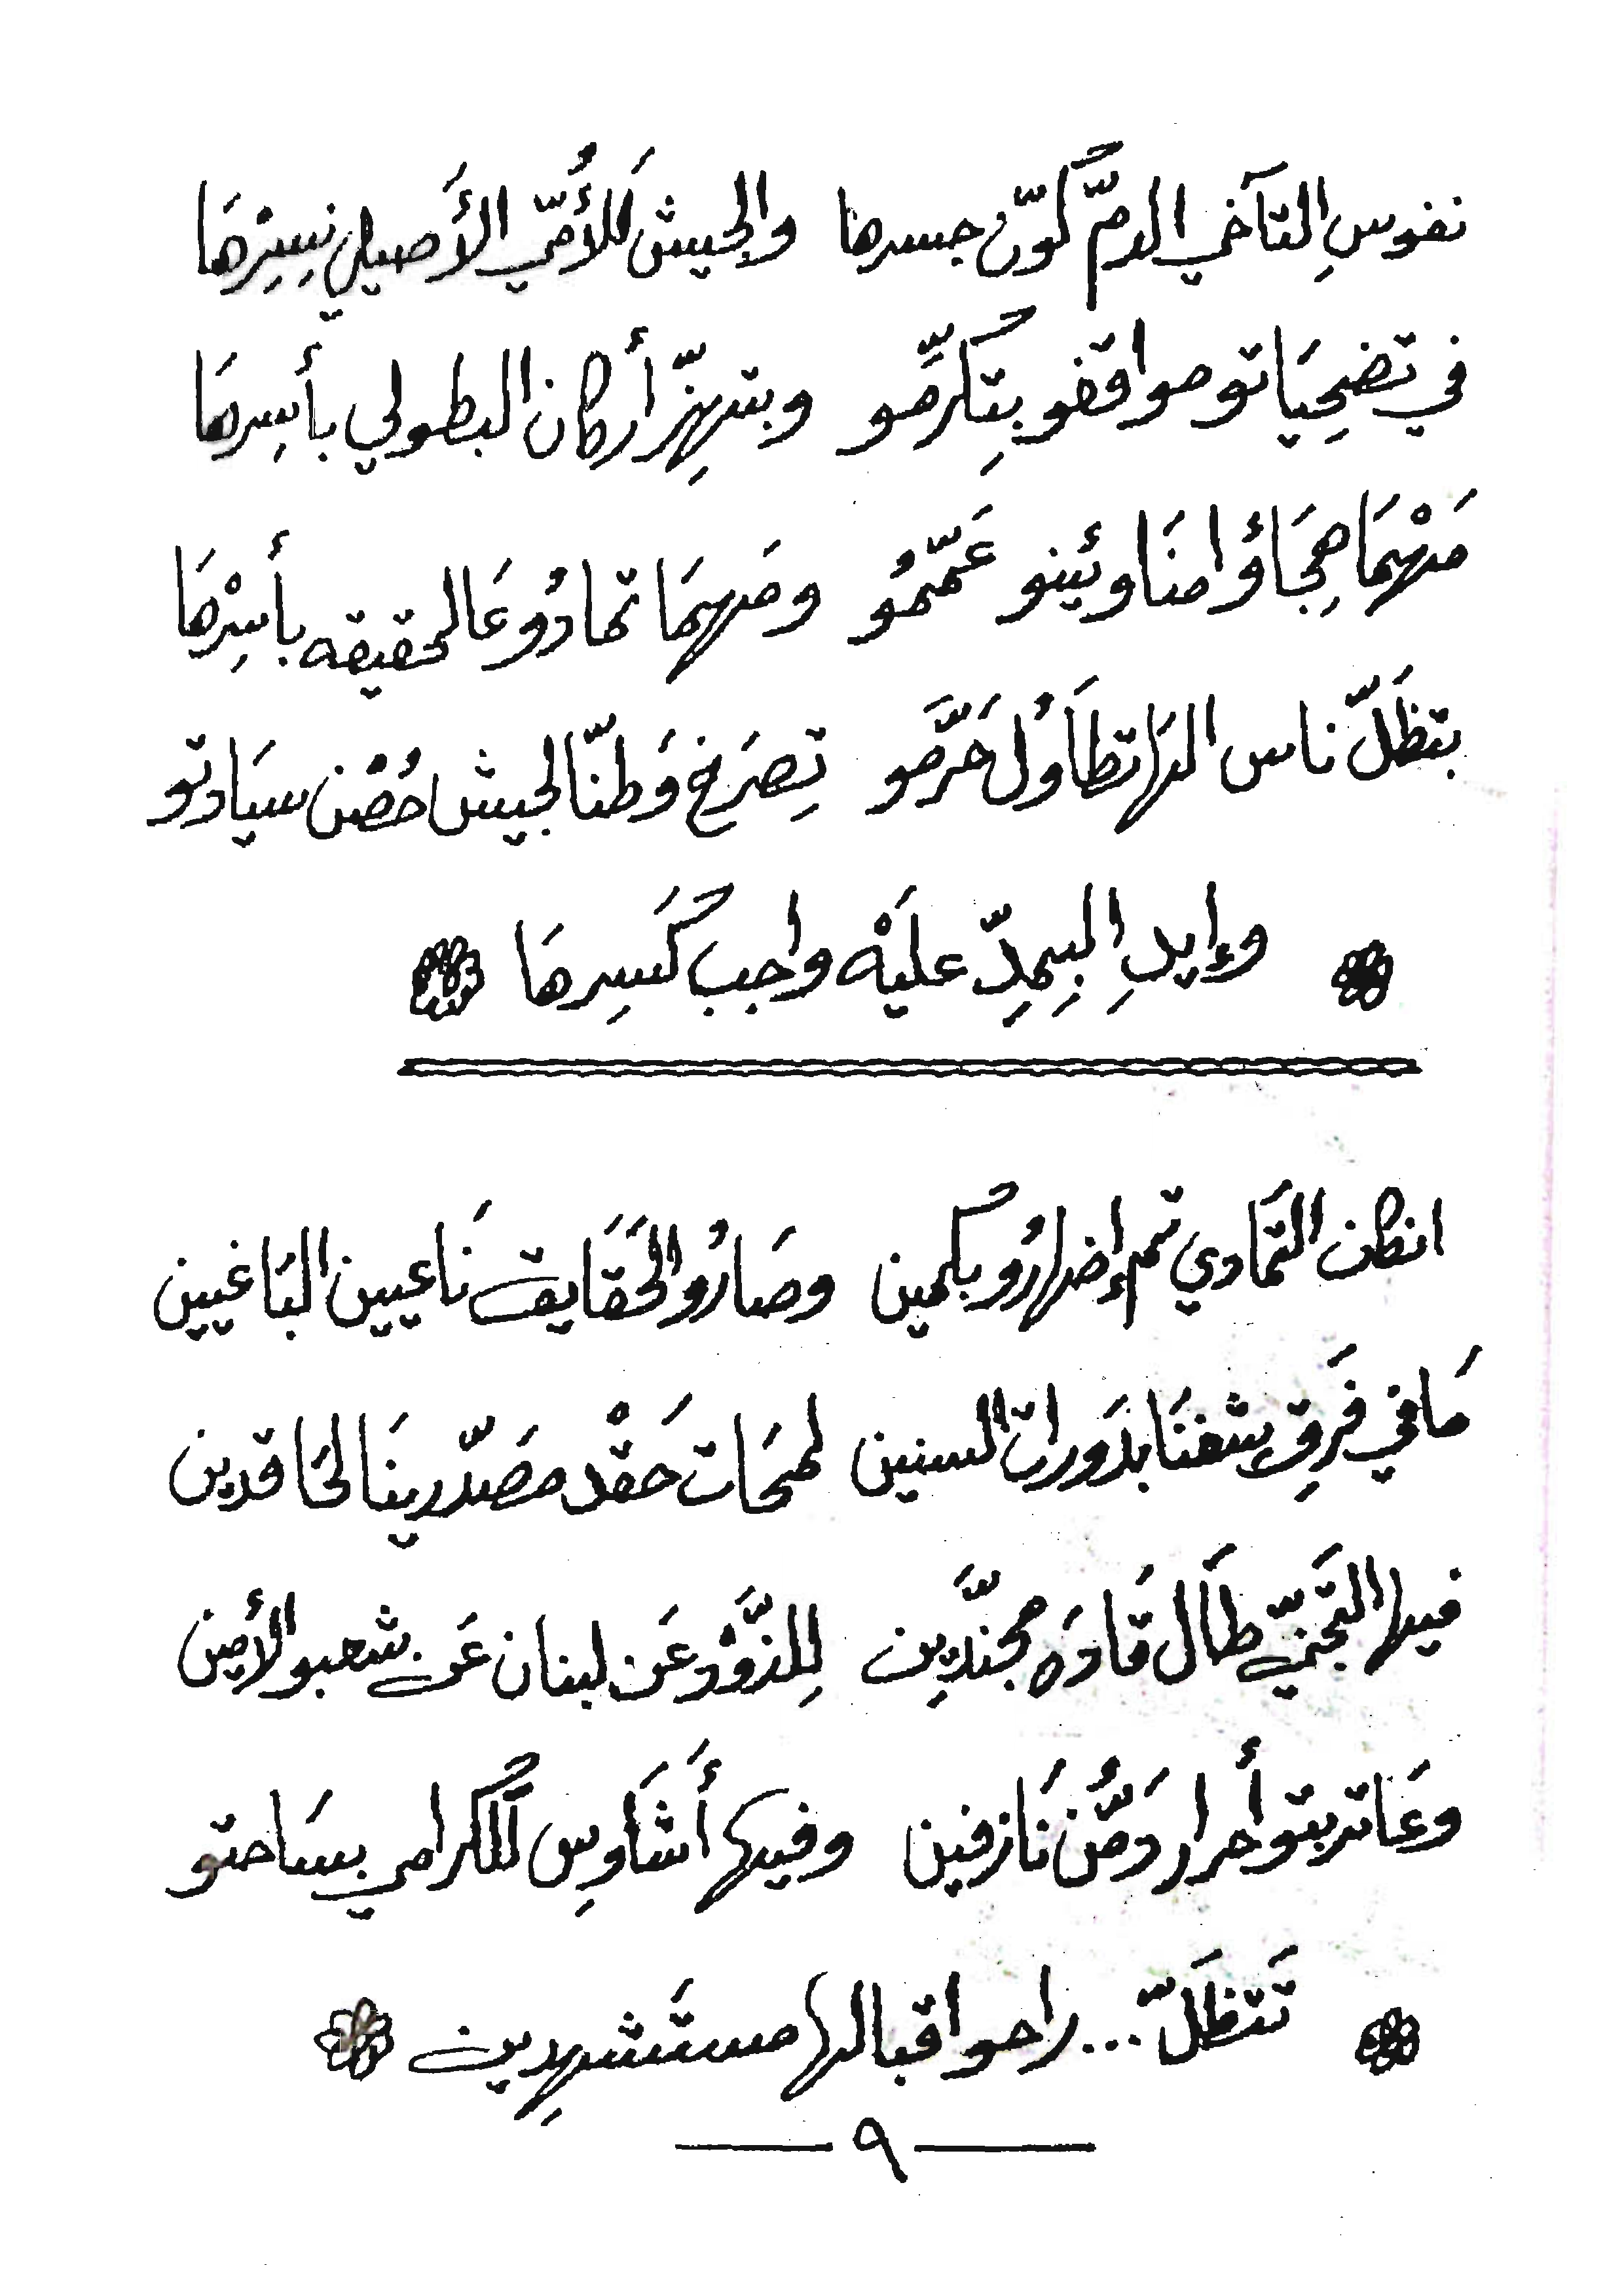 نفوسِ التآخي الدمّ كَوّن جسرها والجيش لَلأُمّي الأَصيلي نِسِرْهَا
في تضحِيَاتو مواقفو بِتكرِّمو وبتهِزّ أركان البطولي بأسِرهَا
مَهْمَا هِجَاؤا مناوئينو عَمّمُو ومَهمَا تمادُو عَالحقيقه بأسِرْهَا
بتظَلّ ناس الها تطَاوُل حَرَّمو تِصرَخ وَطنّا لجيش حُصْن سيَادتو
وإيدِ البِمِدّ عليَهْ واجب كَسِرهَا
انكان التمَادي تم إضهارُو بكمين وصَارُو الحَقَايق نَاعيين البَاغيين
مَا في فَرِق شفنَا بدَورات السنين لمحَات حَقْد مصَدّرينَا لحَاقدين
فيها التَجنّي طَال قَادَه مجنَّدِين لِلذَّوْد عَن لبنان عَن شعبو الأمين
وعَا تربتو أحرار دَمُّن نَازفين وفيها أَشَاوِس لَلكرامي بسَاحتو
تَتظَلّ... راحو اقبالها مستَشهِدين
— ٩ —